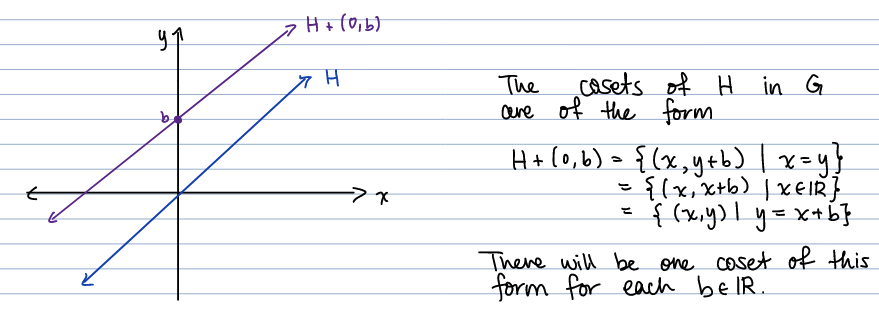 H + (0,b)
y
H
b
x
The cosets of H in G
are of the form
H + (0,b) = {(x, y+b) | x = y}
= {(x, x+b) | x ∈ ℝ}
= {(x,y) | y = x + b}
There will be one coset of this
form for each b ∈ ℝ.